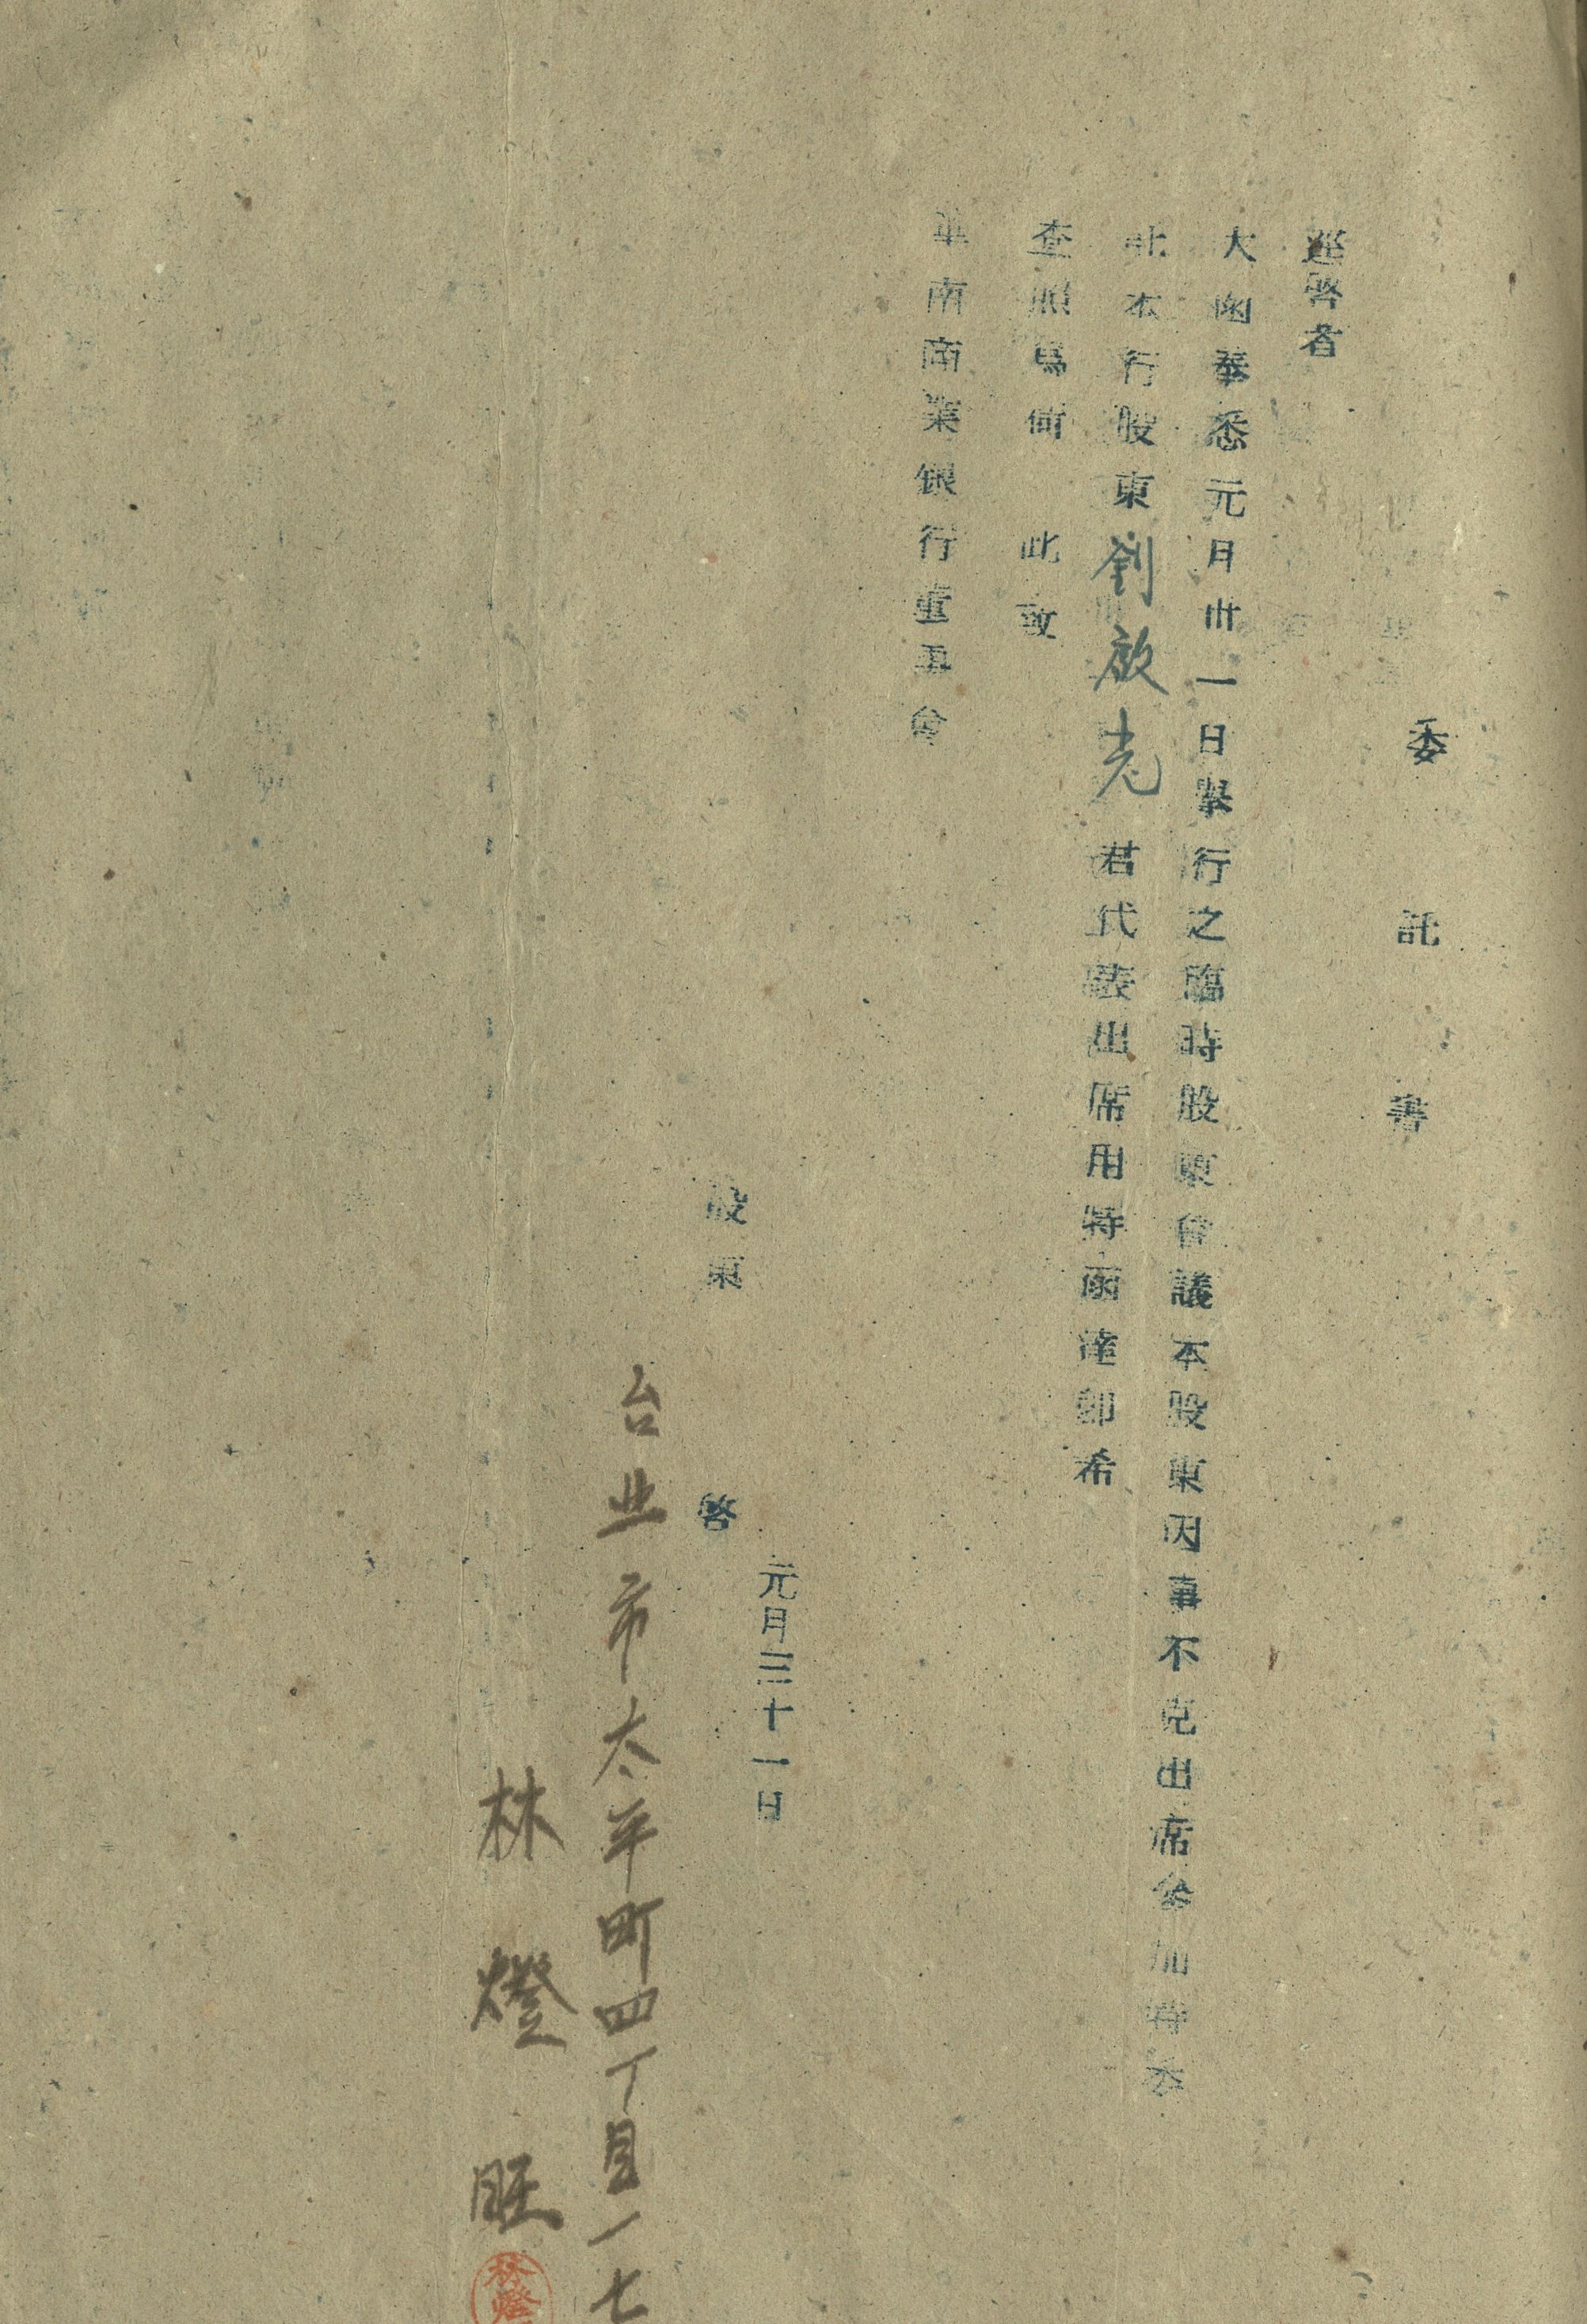 委託書
逕啓者
大函奉悉元月卅一日擧行之臨時股東會議本股東因事不克出席參加特委
託本行股東劉啟光君代表出席用特函達卽希
查照爲荷 此致
華南商業銀行董事會
元月三十一日
股東 啓
台北市太平町四丁目一七
林燈旺
林燈